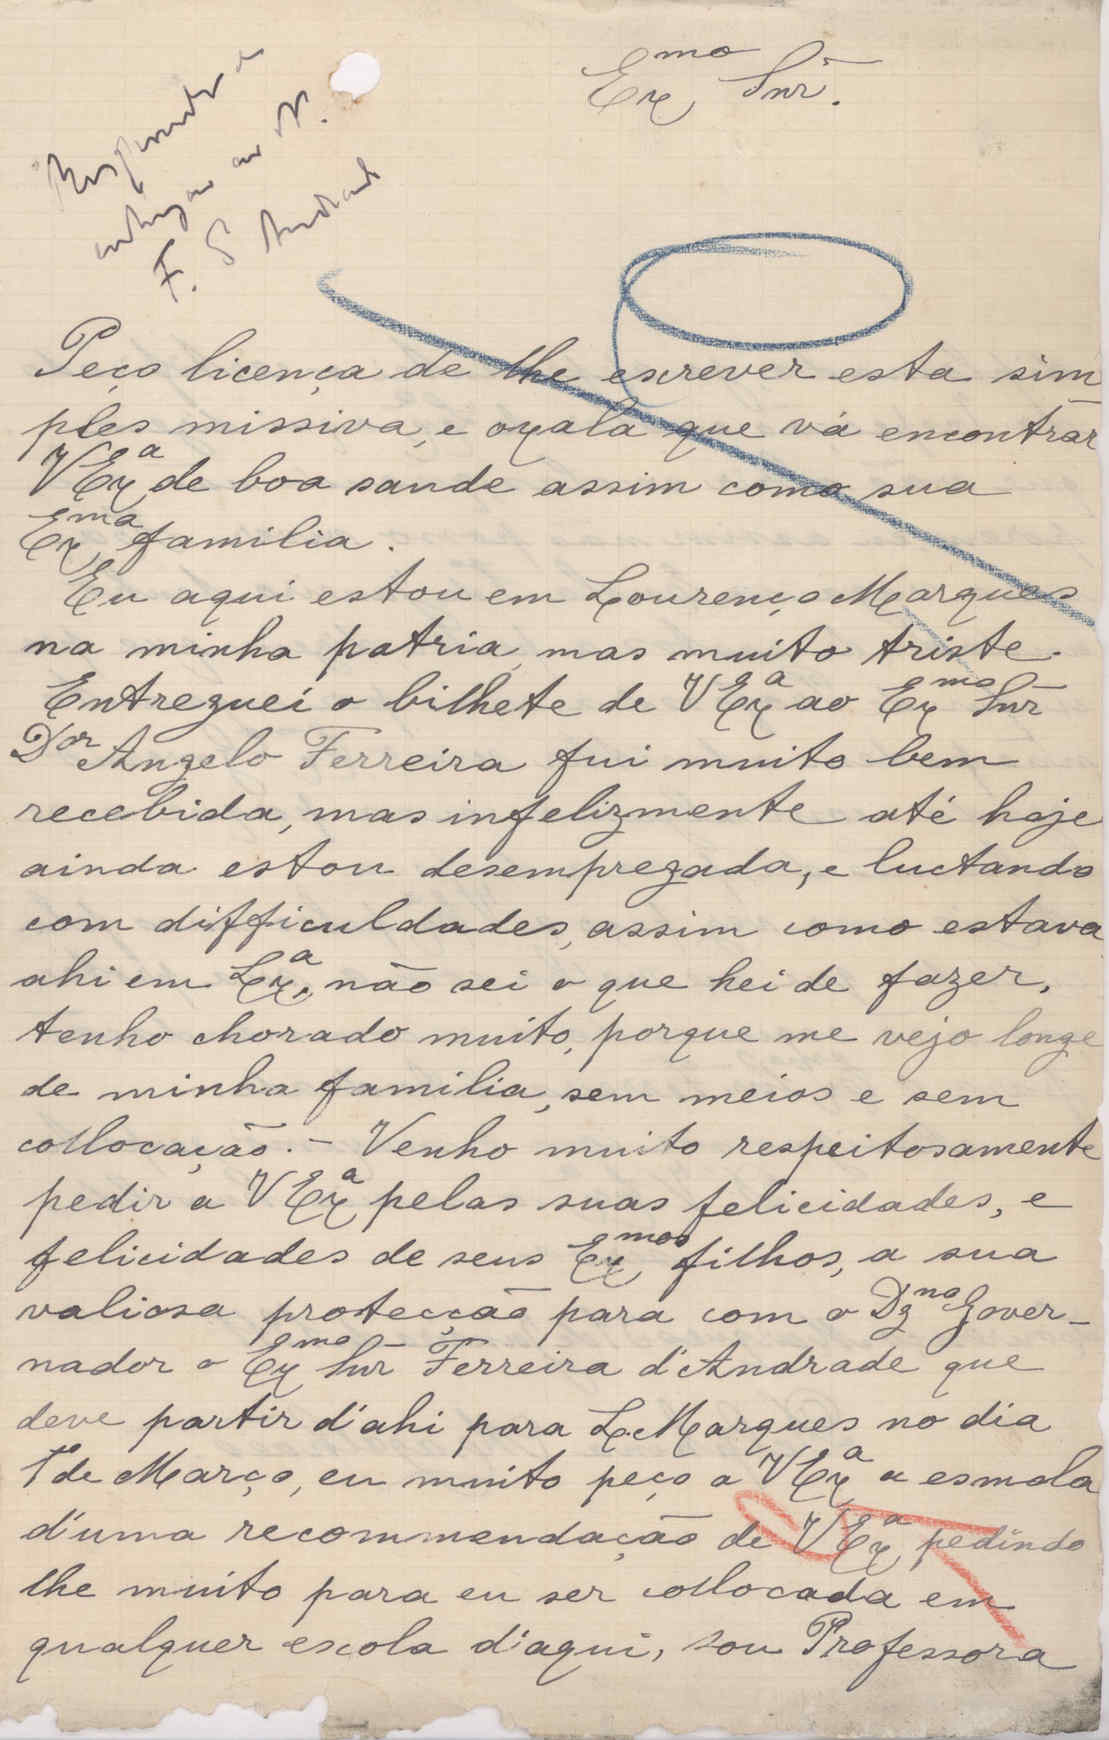 Exmo Snr.
F. S Andrade
Peço licença de lhe escrever esta sim
ples missiva, e oxalá que vá encontrar
VExa de boa saude assim como sua
Exma familia.
Eu aqui estou em Lourenço Marques
na minha patria, mas muito triste.
Entreguei o bilhete de VExa ao Exmo Snr
Dor Angelo Ferreira fui muito bem
recebida, mas infelizmente até hoje
ainda estou desempregada, e luctando
com difficuldades, assim como estava
ahi em Lxa, não sei o que hei de fazer,
tenho chorado muito, porque me vejo longe
de minha familia, sem meios e sem
collocação. - Venho muito respeitosamente
pedir a VExa pelas suas felicidades, e
felicidades de seus Exmos filhos, a sua
valiosa protecção para com o Dgno Gover-
nador o Exmo Snr Ferreira d'Andrade que
deve partir d'ahi para L. Marques no dia
1º de Março, eu muito peço a VExa a esmola
d'uma recommendação de VExa pedindo
lhe muito para eu ser collocada em
qualquer escola d'aqui, sou Professora